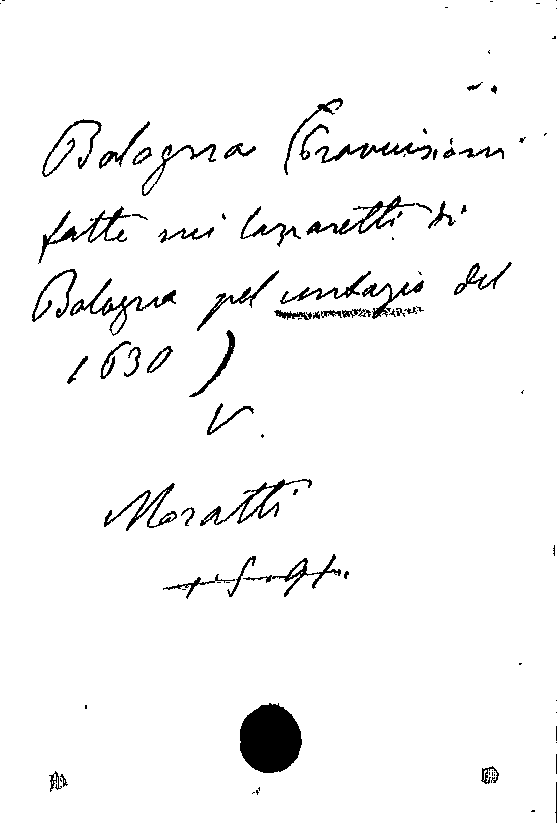 Bologna (Provvisioni
fatte nei lazzaretti di
Bologna pel contagio del
1630)
V.
Moratti